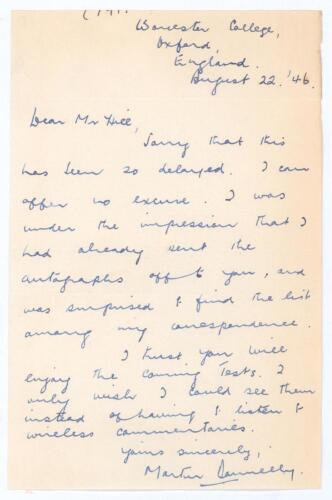 Worcester College,
Oxford,
England.
August 22. '46.
Dear Mr Hill,
Sorry that this
has been so delayed. I can
offer no excuse. I was
under the impression that I
had already sent the
autographs off to you, and
was surprised to find the list
among my correspondence.
I trust you will
enjoy the coming Tests. I
only wish I could see them
instead of having to listen to
wireless commentaries.
Yours sincerely,
Martin Donnelly.